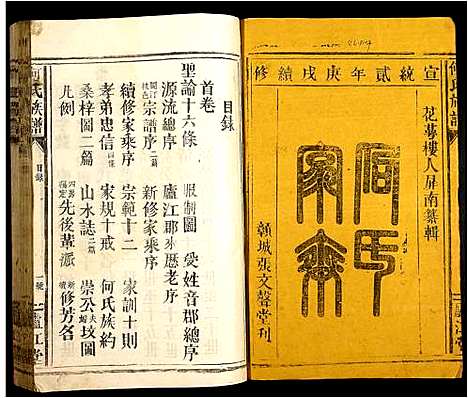 宣統貳年庚戌續修
花萼樓人屏南纂輯
何氏家乘
張文聲堂刊
廬江堂
目錄
首卷
聖諭十六條 服制圖 受姓音郡總序
源流總序 廬江郡來歷老序
宗譜序 新修家乘序
續修家乘序 宗範十二 家訓十則
孝弟信 家規十戒 何氏族約
桑梓圖二篇 山水誌 崇公 坟圖
凡例 先後輩派 修芳名
何氏族譜
目錄
廬江堂